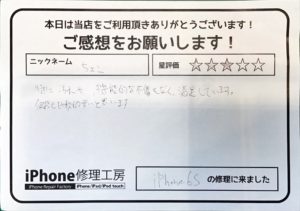 本日は当店をご利用頂きありがとうございます！
ご感想をお願いします！
ニックネーム
星評価 ☆☆☆☆☆
不備もなく、満足しています。
iPhone修理工房
iPhone Repair Factory iPhone/iPad/iPod touch
iPhone6S の修理に来ました